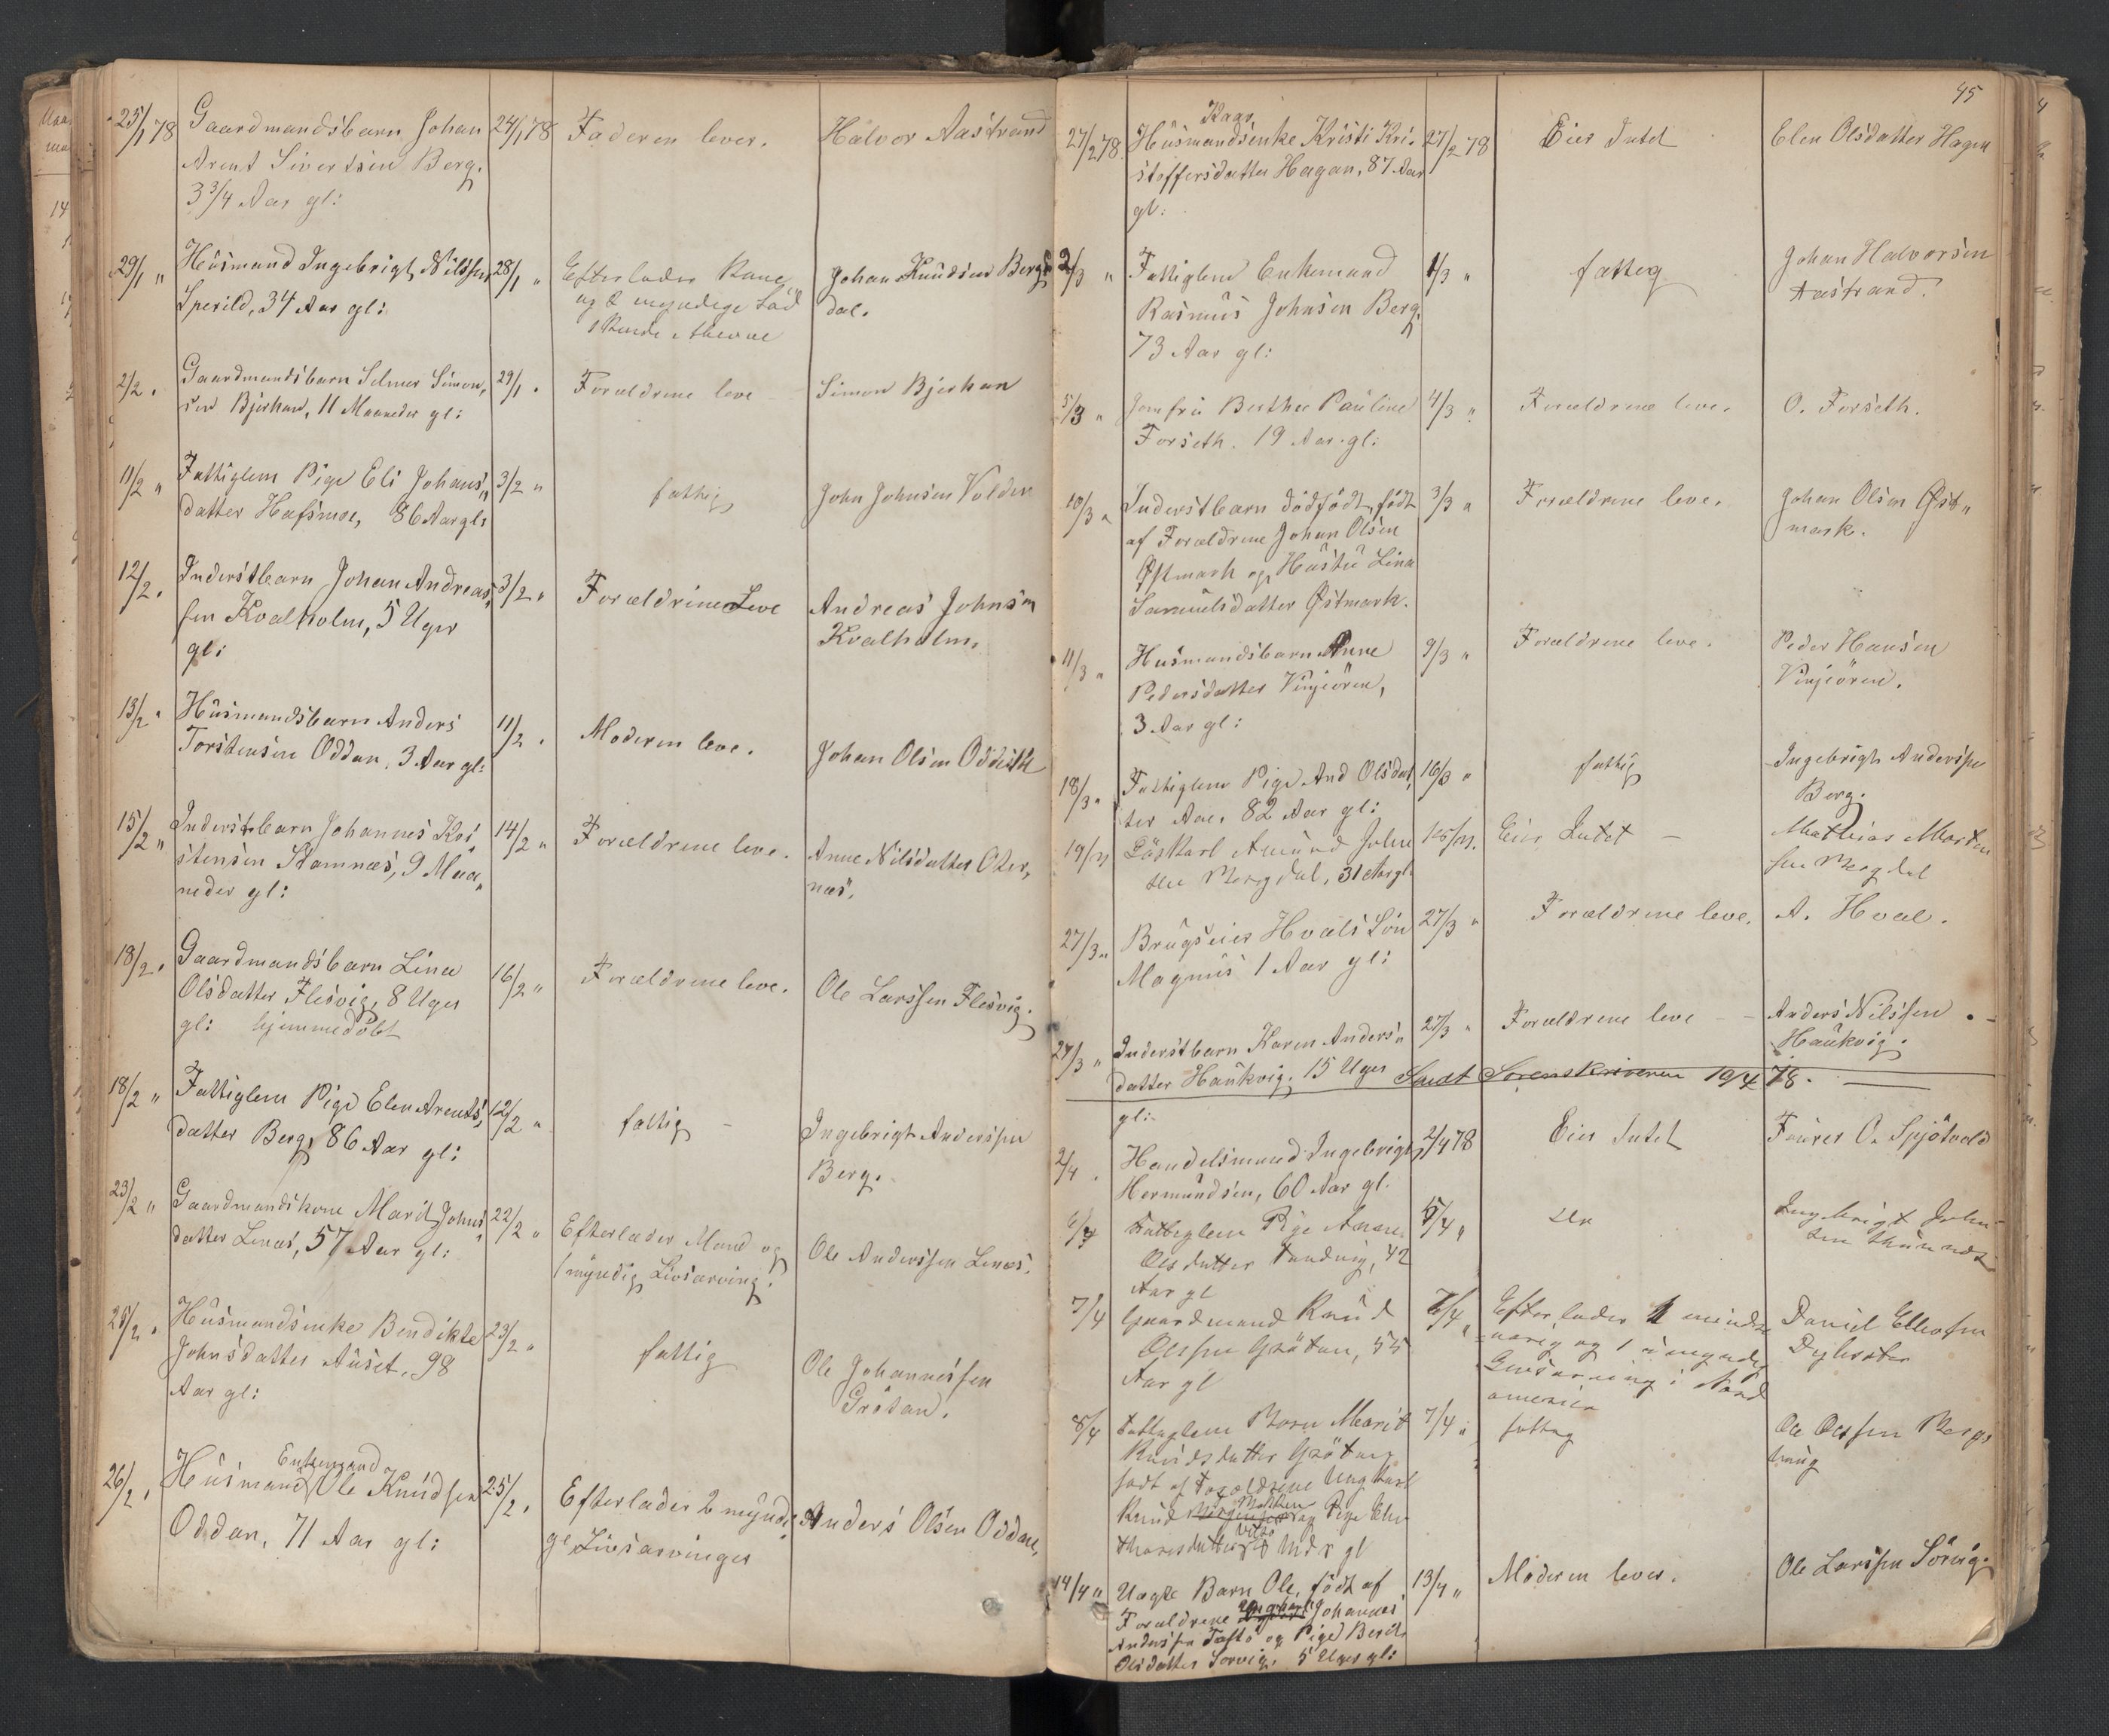 25/1 78 Gaardmandsbarn Johan 24/1 78 Faderen lever. Halvor Aastrand
Arent Sivertsen Berg.
3 3/4 Aar gl:
29/1 " Husmand Ingebrigt Nilssen 28/1 " Efterlader Kone Johan Knudsen Bergs
Sperild, 34 Aar gl: dal.
2/2 " Gaardmandsbarn Selmer Simon, 29/1 " Forældrene leve Simon Bjerkan
sen Bjerkan, 11 Maaneder gl:
11/2 " Fattiglem Pige Eli Johans, 3/2 " fattig John Johnsen Volden
datter Hafsmoe, 86 Aar gl:
12/2 " Inderstbarn Johan Andreas, 3/2 " Forældrene Leve Andreas Johnsen
sen Kvalholm, 5 Uger Kvalholm,
gl:
13/2 " Husmandsbarn Anders 11/2 " Moderen leve. Johan Olsen
Torstensen Oddan, 3 Aar gl:
15/2 " Inderstbarn Johannes Kri, 14/2 " Forældrene leve. Anne Nilsdatter Oter,
stensen Stamnæs, 9 Maa, næs.
neder gl:
18/2 " Gaardmandsbarn Lina 16/2 " Forældrene leve. Ole Larssen Flesvig.
Olsdatter Flesvig, 8 Uger
gl: hjemmedøbt
18/2 " Fattiglem Pige Elen Arents, 12/2 " fattig – Ingebrigt Anderssen
datter Berg, 86 Aar gl: Berg.
23/2 " Gaardmandskone Marit Johns, 22/2 " Efterlader Mand og Ole Anderssen Lenæs.
datter Lenæs, 57 Aar gl: 1 myndig Livsarving.
25/2 " Husmandsenke Bendikte 23/2 " fattig Ole Johannessen
Johnsdatter Auset, 98 Grøtan.
Aar gl:
Enkemand
26/2 " Husmand Ole Knudsen 25/2 " Efterlader 2 mynde, Anders Olsen Oddan,
Oddan, 71 Aar gl: ge Livsarvinger
45
Kaar
27/2 78 Husmandsenke Kristi Kri, 27/2 78 Eier Intet Elen Olsdatter Hagen
stoffersdatter Hagan, 87 Aar
gl:
2/3 " Fattiglem Enkemand 1/3 " fatteg Johan Halvorsen
Rasmus Johnsen Berg. Aastrand.
73 Aar gl:
5/3 " Jomfru Berthe Pauline 4/3 " Forældrene leve. O. Forseth.
Forseth. 19 Aar gl:
10/3 " Inderstbarn dødfødt, født 3/3 " Forældrene leve. Johan Olsen Øst,,
af Forældrene Johan Olsen mark.
Østmark og Hustru Lina
Samuelsdatter Østmark.
11/3 " Husmandsbarn Anne 9/3 " Forældrene leve. Peder Hansen
Pedersdatter Vinjeøren, Vinjeøren.
3 Aar gl:
18/3 " Fattiglem Pige And Olsdat, 16/3 " fattig Ingebrigt Anderssen
ter Aae. 82 Aar gl: Berg.
19/3 Løskarl Amund John Eier Intet – Mathias Morten
sen Bergdal, 31 Aar gl sen Bergdal
27/3 " Brugseier Hvals Søn 27/3 " Forældrene leve. A. Hval.
Magnus 1 Aar gl:
27/3 " Inderstbarn Karen Anders,, 27/3 " Forældrene leve – Anders Nilssen
datter Haukvig. 15 Uger Haukvig.
gl: Sendt Sorenskriveren 19/4 78.
2/4 " Handelsmand Ingebrigt 2/4 78 Eier Intet Fourer O. Spjøtvold
Hermundsen, 60 Aar gl.
6/4 Fattiglem Pige Anne 5/4 " Ingebrigt John
Olsdatter Sandvig, 42 sen
Aar gl
7/4 Gaardmand Knud 6/4 " Efterlader 1 mindre Daniel Ellevsen
Olssen Grøtan, 55 aarig og 1 umyndig
Aar gl Livsarving i Nord
america
8/4 Fattiglem Barn Marit 7/4 " fattig Ole Olssen Berg,
Knudsdatter Grøtan haug
født af Forældrene Ungkarl
Knud og Pige Elen
Mdr gl
14/4 " Uægte Barn Ole, født af 13/4 " Moderen lever. Ole Larssen Sørvig.
Forældrene Ungkarl Johannes
Anderssen Taftø og Pige Berit
Olsdatter Sørvig, 5 Uger gl: